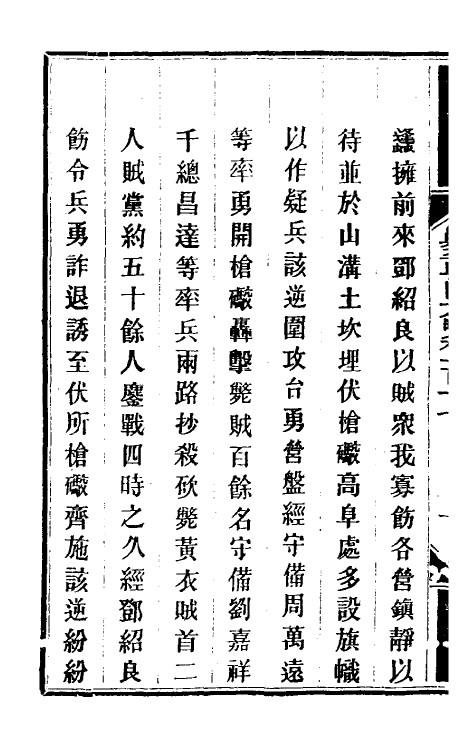 蠭擁前來鄧紹良以賊衆我寡飭各營鎮靜以
待並於山溝土坎埋伏槍礮高阜處多設旗幟
以作疑兵該逆圍攻台勇營盤經守備周萬遠
等率勇開槍礮轟擊斃賊百餘名守備劉嘉祥
千總昌達等率兵兩路抄殺砍斃黃衣賊首二
人賊黨約五十餘人鏖戰四時之久經鄧紹良
飭令兵勇詐退誘至伏所槍礮齊施該逆紛紛